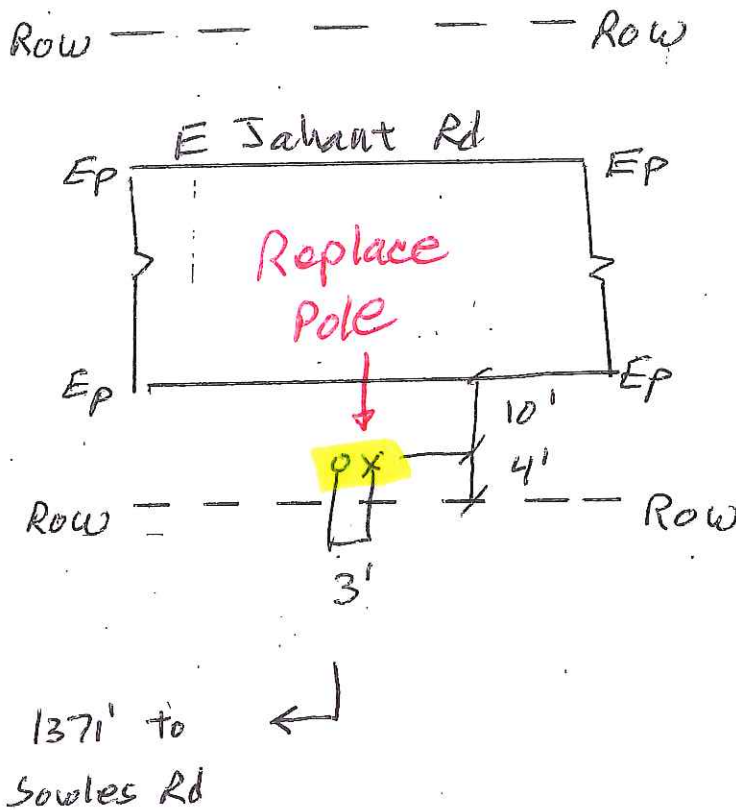 Row Row
E Jahant Rd
Ep Ep
Replace
Pole
Ep Ep
10'
o x
4'
Row Row
3'
1371' to
Sowles Rd